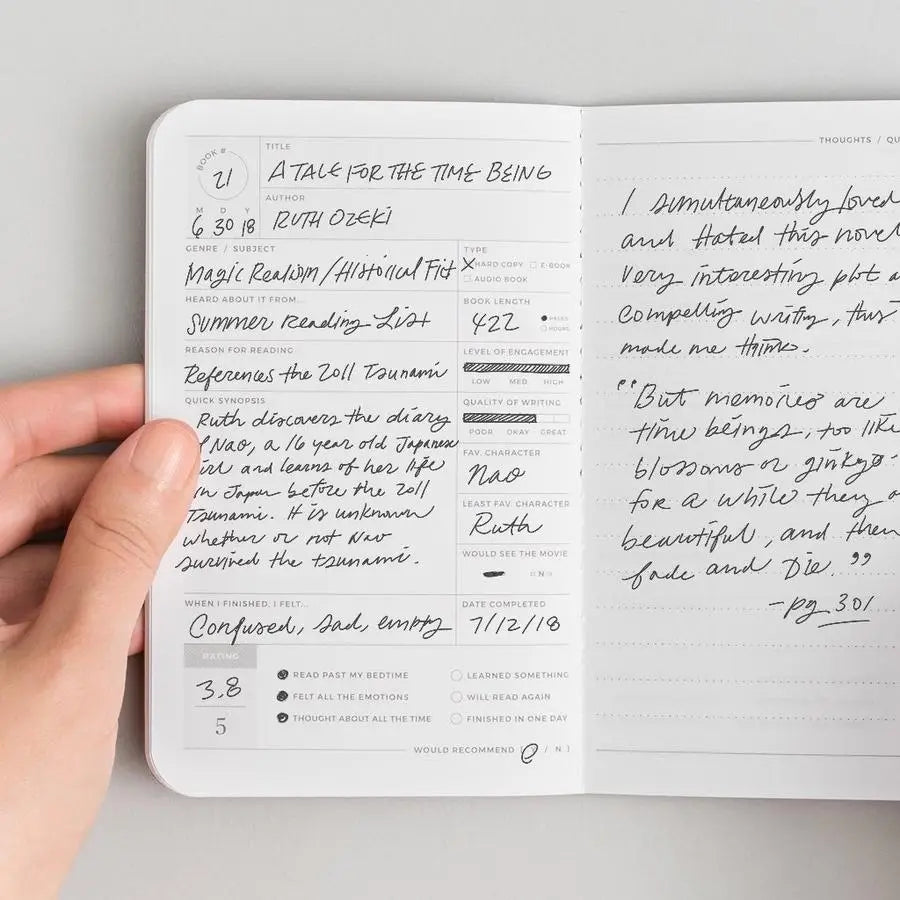 BOOK #
21
M D Y
6 30 18
TITLE
A TALE FOR THE TIME BEING
AUTHOR
RUTH OZEKI
GENRE / SUBJECT
Magic Realism / Historical Fict
TYPE
X HARD COPY E-BOOK
AUDIO BOOK
HEARD ABOUT IT FROM...
Summer Reading List
BOOK LENGTH
422
PAGES
HOURS
REASON FOR READING
References the 2011 Tsunami
LEVEL OF ENGAGEMENT
LOW MED HIGH
QUICK SYNOPSIS
Ruth discovers the diary
f Nao, a 16 year old Japanese
irl and learns of her life
in Japan before the 2011
Tsunami. It is unknown
whether or not Nao
survived the tsunami.
QUALITY OF WRITING
POOR OKAY GREAT
FAV. CHARACTER
Nao
LEAST FAV. CHARACTER
Ruth
WOULD SEE THE MOVIE
N
WHEN I FINISHED, I FELT...
Confused, sad, empty
DATE COMPLETED
7/12/18
RATING
3.8
5
READ PAST MY BEDTIME
FELT ALL THE EMOTIONS
THOUGHT ABOUT ALL THE TIME
LEARNED SOMETHING
WILL READ AGAIN
FINISHED IN ONE DAY
WOULD RECOMMEND [ / N ]
THOUGHTS / QU
I simultaneously loved
and Hated this novel
very interesting plot a
compelling writing, this
made me think.
"But memories are
time beings, too, like
blossoms or ginkgo
for a while they a
beautiful, and then
fade and Die."
-pg 301